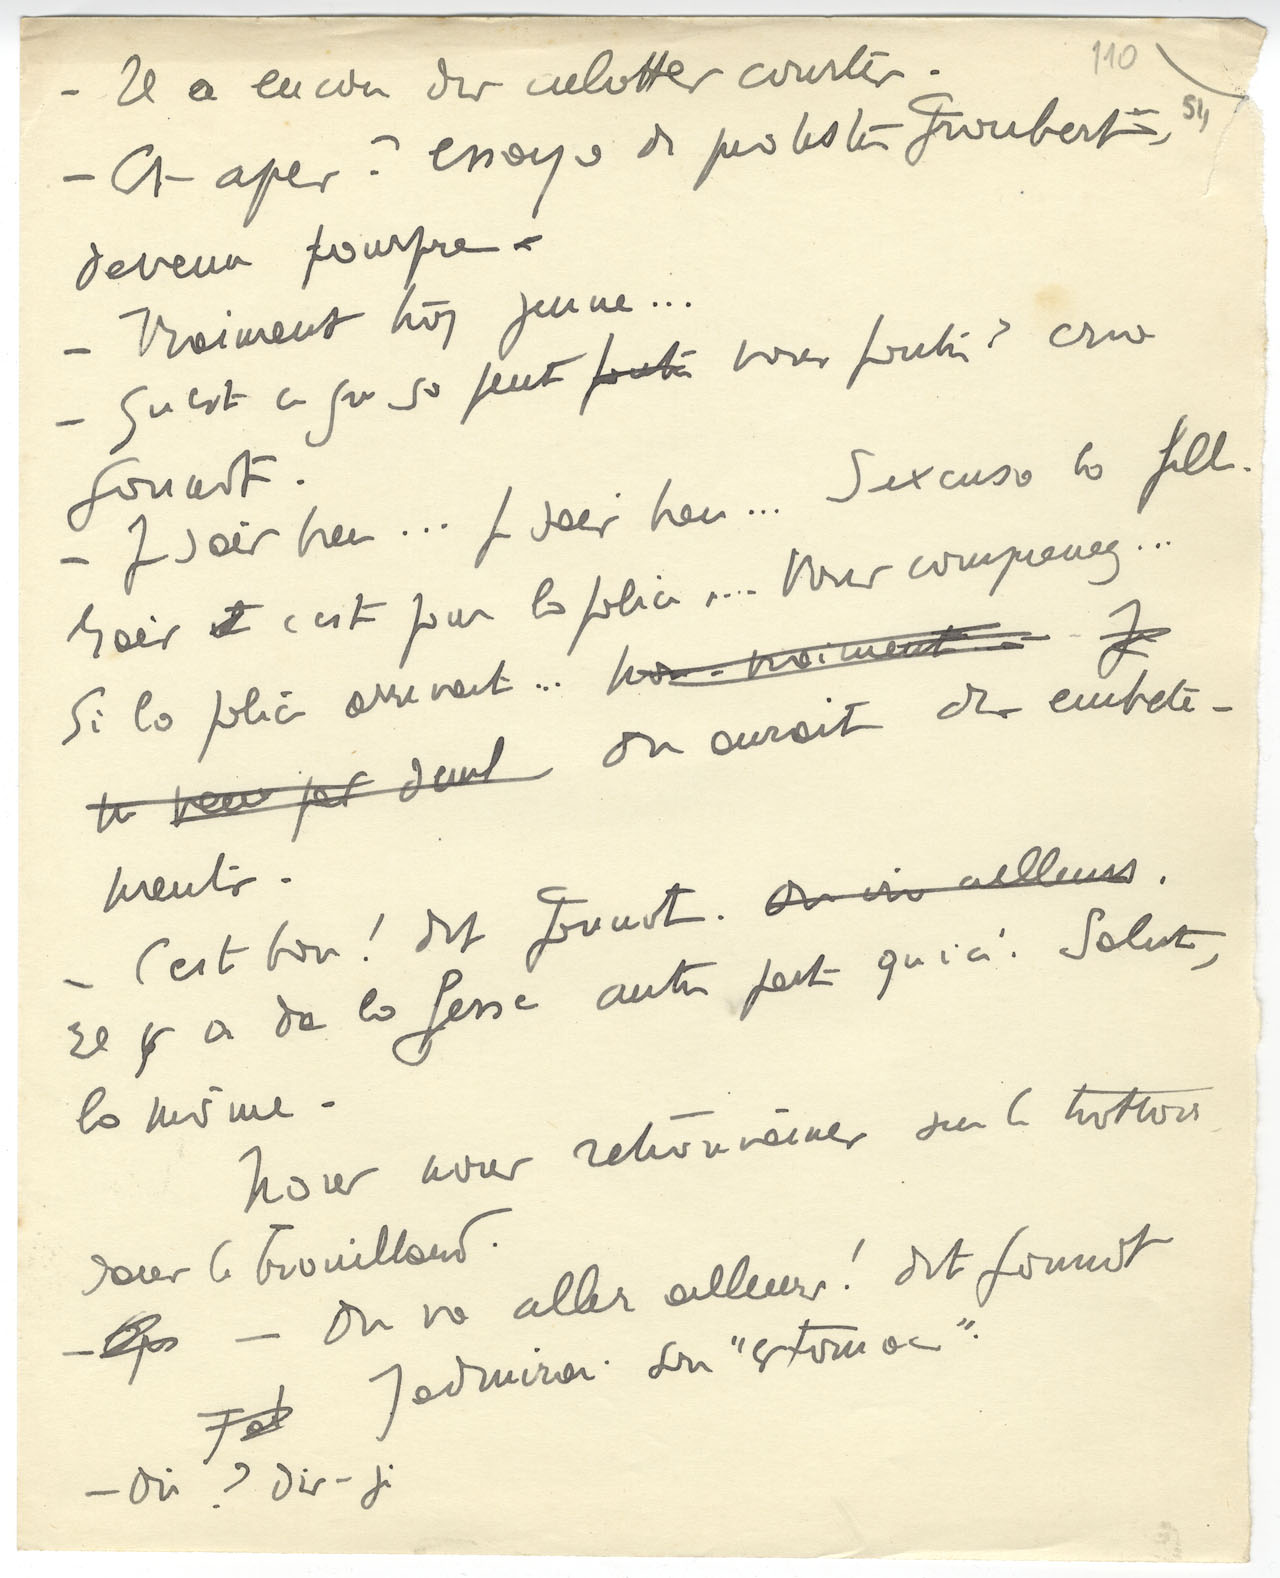 110
54
- Il a encore des culottes courtes.
- Et après ? essaya de protester Troubert,
devenu pourpre.
- Vraiment trop jeune...
- Qu'est ce que ça peut foutre vous foutre ? cria
Gonnot.
- Je sais bien... Je sais bien... s'excusa la fille.
Mais c'est pour la police.... Vous comprenez...
Si la police arrivait... non. vraiment... Je
ne veux pas seul On aurait des embête-
ments.
- C'est bon ! dit Gonnot. On ira ailleurs.
Il y a de la fesse autre part qu'ici. Salut,
la môme.
Nous nous retrouvâmes sur le trottoir
dans le brouillard.
- On va aller ailleurs ! dit Gonnot
J'admirai son "estomac".
- Où ? dis-je